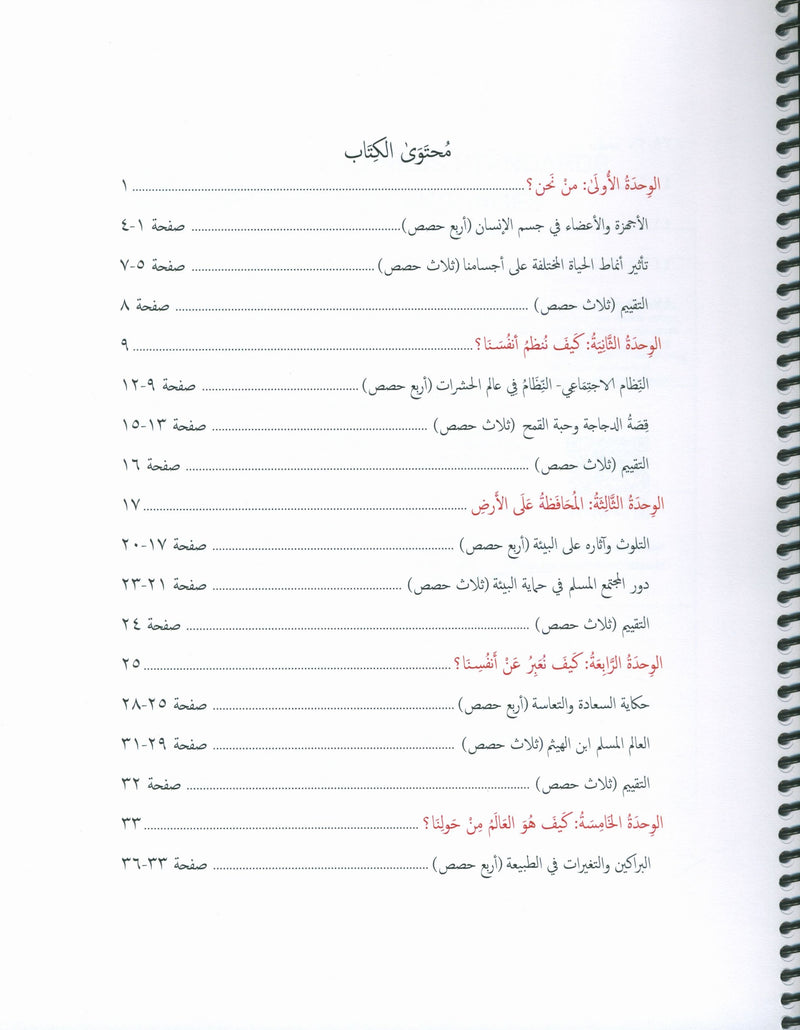 مُحتَوَىٰ الكِتَاب
الوِحدَةُ الأُولَىٰ: منْ نَحن؟ ........ ١
الأجهزة والأعضاء في جسم الإنسان (أربع حصص) ........ صفحة ١-٤
تأثير أنماط الحياة المختلفة على أجسامنا (ثلاث حصص) ........ صفحة ٥-٧
التقييم (ثلاث حصص) ........ صفحة ٨
الوِحدَةُ الثَّانِيَةُ: كَيفَ نُنظمُ أنفُسَنَا؟ ........ ٩
النِّظام الاجتِمَاعي- النِّظَامُ فِي عالم الحشرات (أربع حصص) ........ صفحة ٩-١٢
قِصَةُ الدجاجة وحبة القمح (ثلاث حصص) ........ صفحة ١٣-١٥
التقييم (ثلاث حصص) ........ صفحة ١٦
الوِحدَةُ الثَّالِثَةُ: المُحَافَظةُ عَلَى الأَرضِ ........ ١٧
التلوث وآثاره على البيئة (أربع حصص) ........ صفحة ١٧-٢٠
دور المجتمع المسلم في حماية البيئة (ثلاث حصص) ........ صفحة ٢١-٢٣
التقييم (ثلاث حصص) ........ صفحة ٢٤
الوِحدَةُ الرَّابِعَةُ: كَيفَ نُعَبِرُ عَنْ أَنفُسِنَا؟ ........ ٢٥
حكاية السعادة والتعاسة (أربع حصص) ........ صفحة ٢٥-٢٨
العالم المسلم ابن الهيثم (ثلاث حصص) ........ صفحة ٢٩-٣١
التقييم (ثلاث حصص) ........ صفحة ٣٢
الوِحدَةُ الخَامِسَةُ: كَيفَ هُوَ العَالَمُ مِنْ حَولِنَا؟ ........ ٣٣
البراكين والتغيرات في الطبيعة (أربع حصص) ........ صفحة ٣٣-٣٦